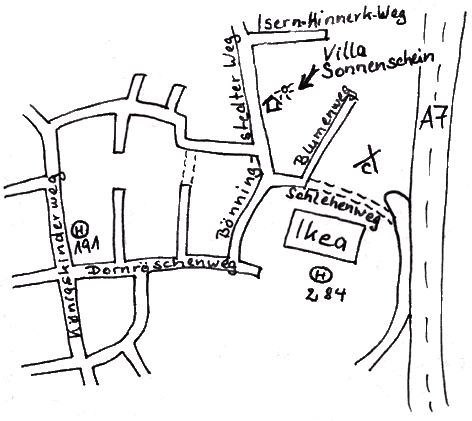 Isern-Hinnerk-Weg
Villa
Sonnenschein
Bönning-
stedter Weg
Blumenweg
A7
Schlehenweg
Ikea
H
2,84
Königskinderweg
H
191
Dornröschenweg